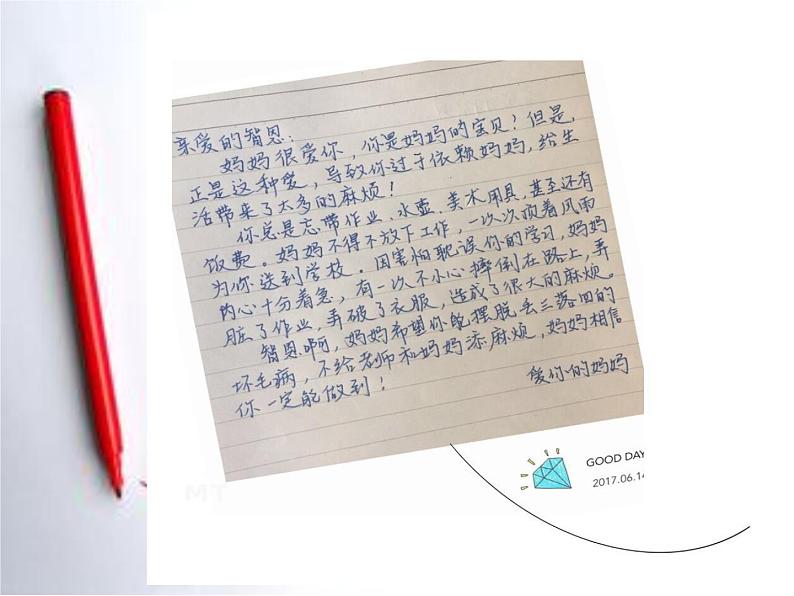 亲爱的智恩:
妈妈很爱你，你是妈妈的宝贝！但是，
正是这种爱，导致你过于依赖妈妈，给生
活带来了太多的麻烦！
你总是忘带作业、水壶、美术用具，甚至还有
饭费。妈妈不得不放下工作，一次次顶着风雨
为你送到学校。因害怕耽误你的学习，妈妈
内心十分着急，有一次不小心摔倒在路上，弄
脏了作业，弄破了衣服，造成了很大的麻烦。
智恩啊，妈妈希望你能摆脱丢三落四的
坏毛病，不给老师和妈妈添麻烦，妈妈相信
你一定能做到！
爱你的妈妈
GOOD DAY
2017.06.14
MT